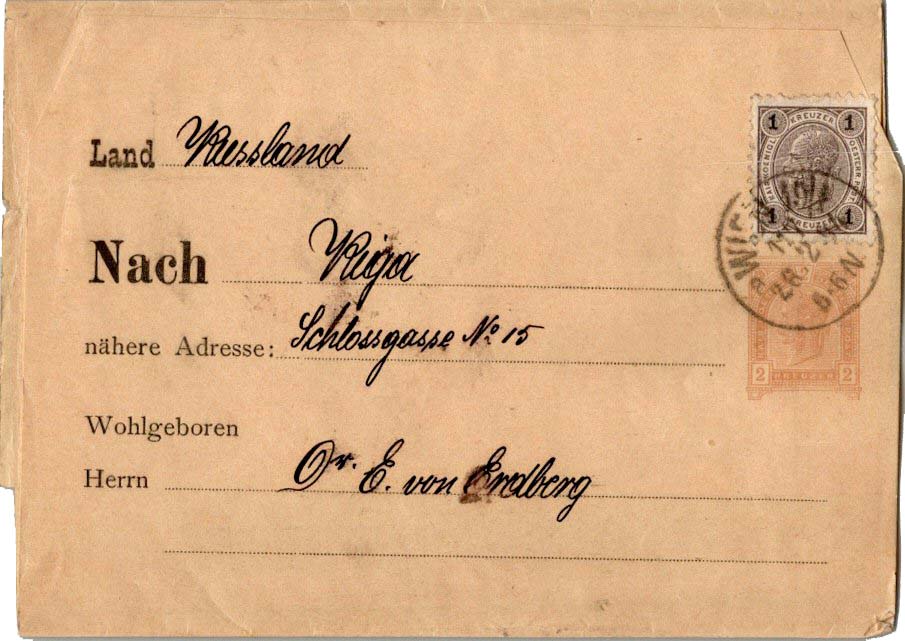 Land Russland
Nach Riga
nähere Adresse: Schlossgasse No 15
Wohlgeboren
Herrn Dr. E. von Erdberg
1 KREUZER 1
1 KREUZER 1
WIEN
28. 2
5-6N
2 KREUZER 2